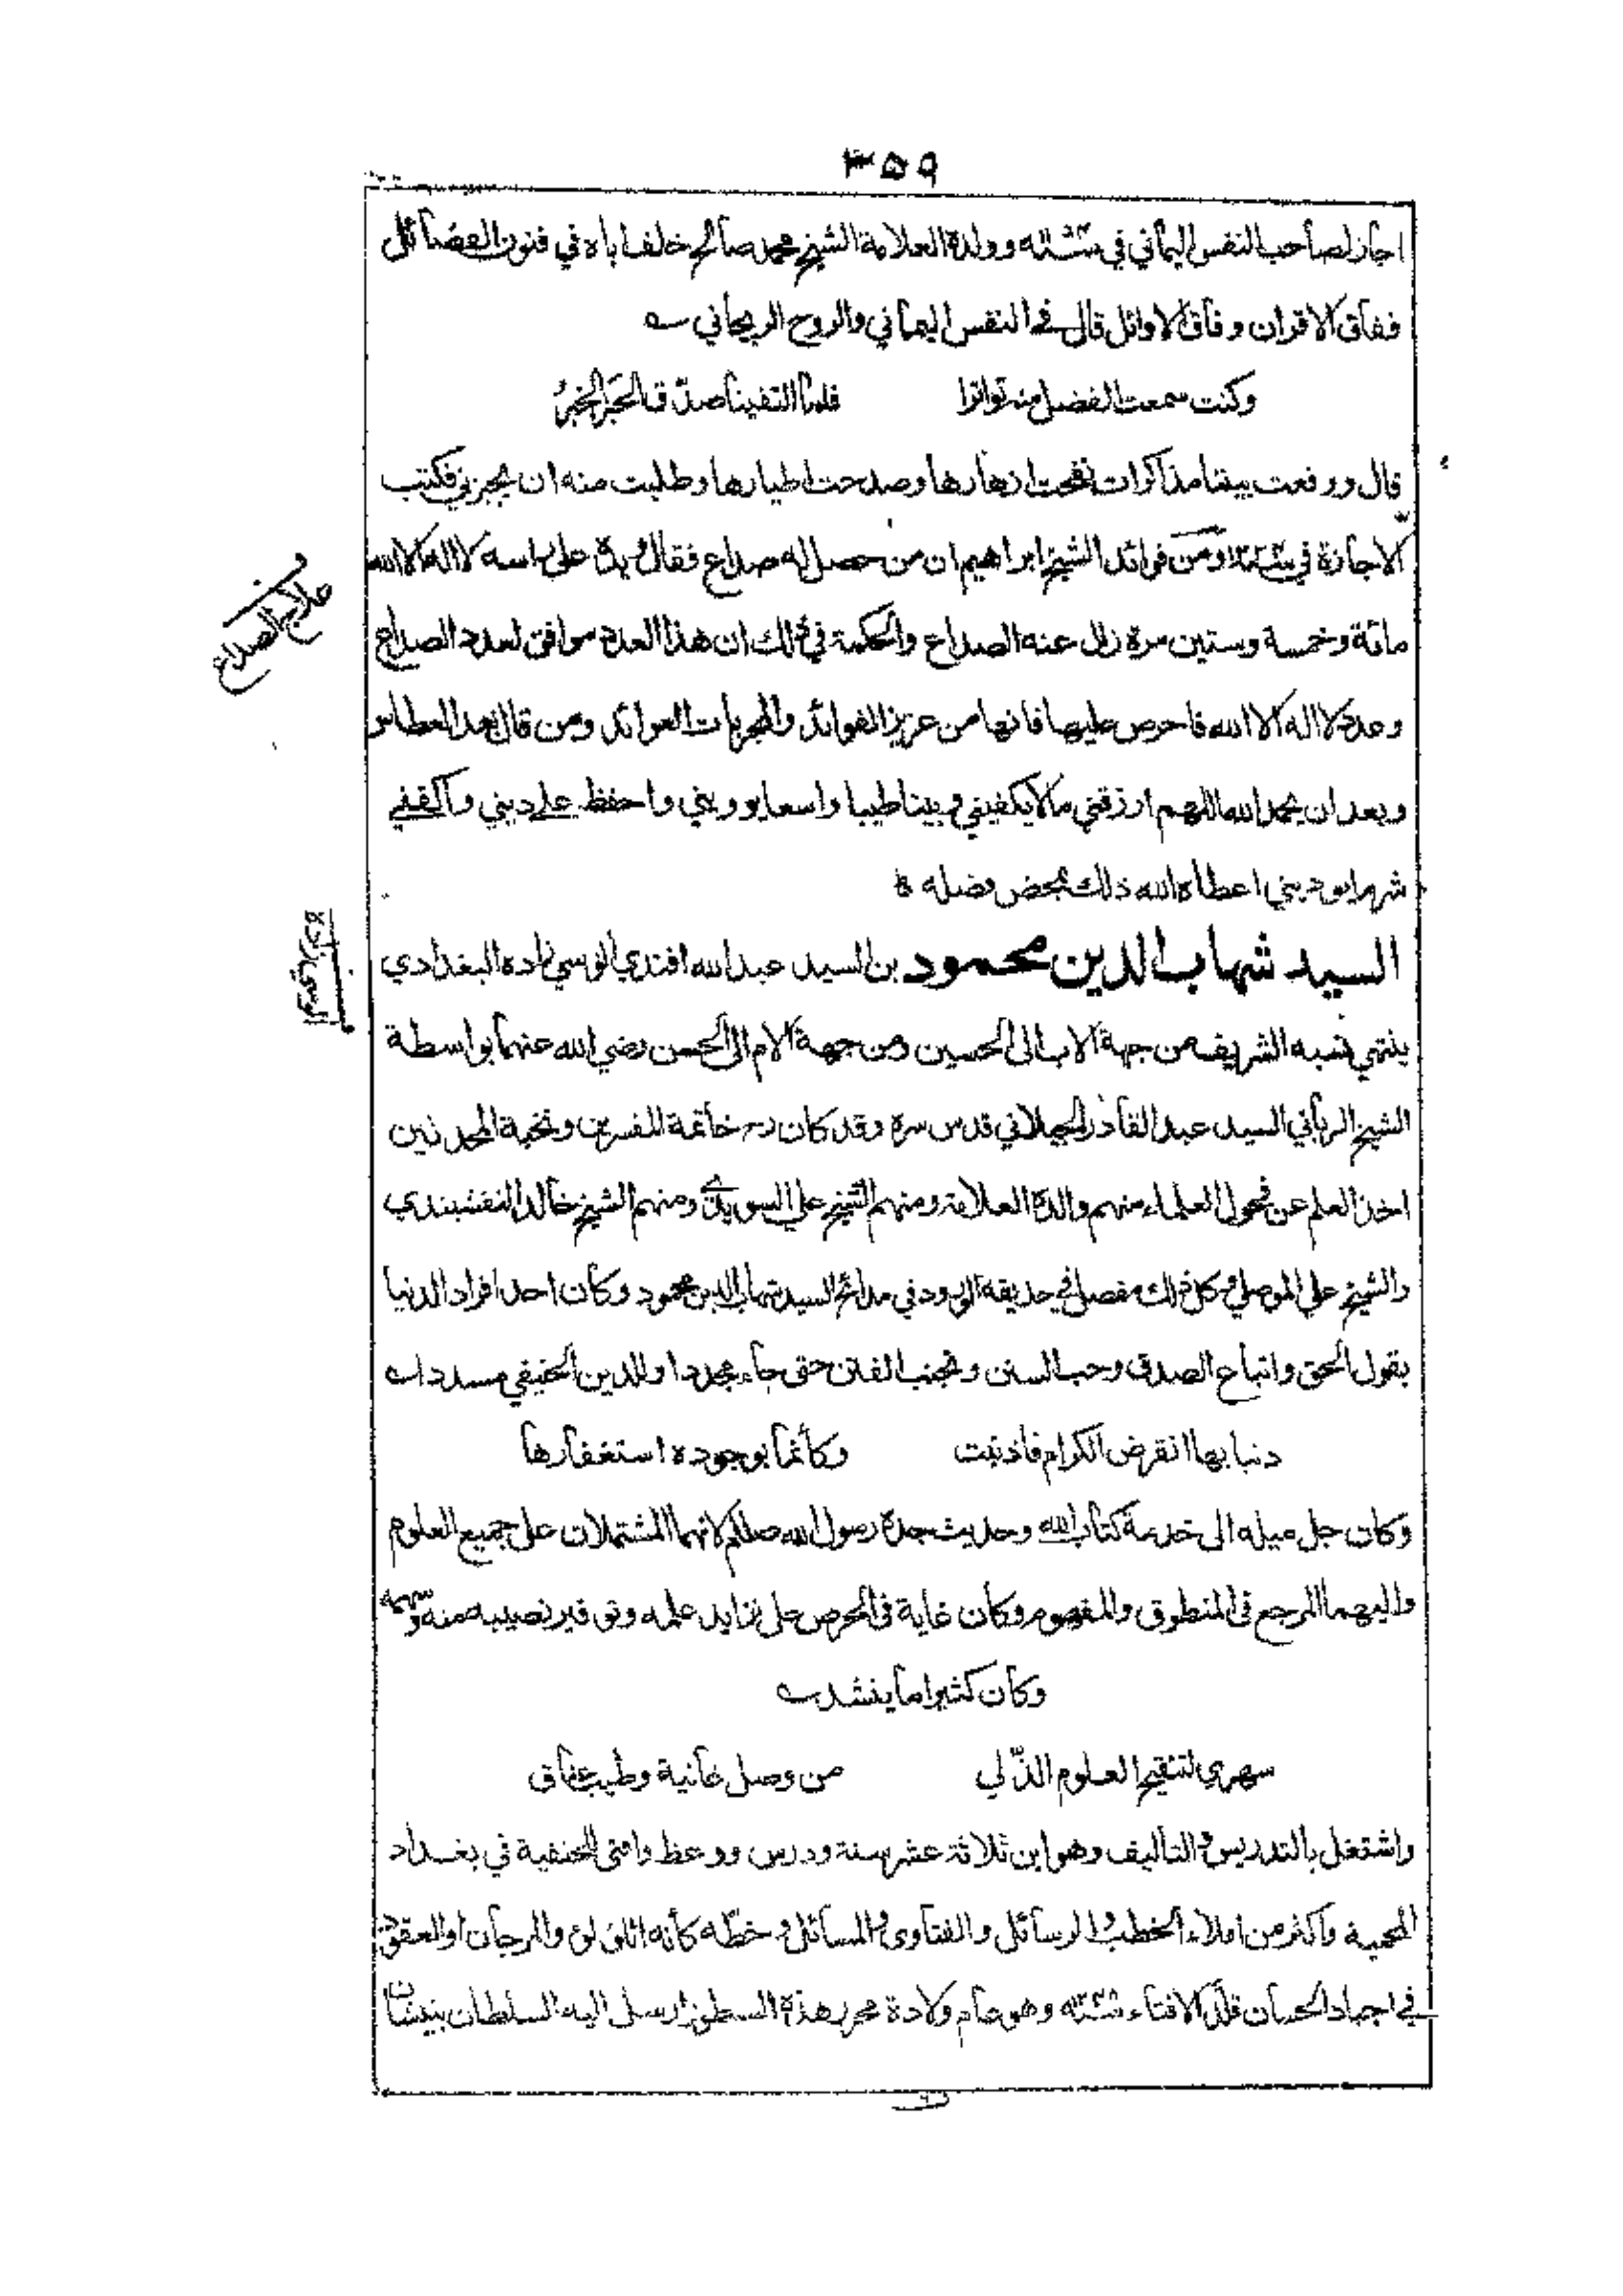 ٣٥٩
اجاز لصاحب النفس اليماني في سنة وولده العلامة الشيخ محمد صالح خلف اباه في فنون الفضائل
ففاق الاقران وفاق الاوائل قال في النفس اليماني والروح الريحاني
وكنت سمعت الفضل منه تواترا فلما التقينا صدّق الخَبَر الخبرُ
قال ووقعت بيننا مذاكرات نفحت ازهارها وصدحت اطيارها وطلبت منه ان يجيزني فكتب
الاجازة في سنة ومن فوائد الشيخ ابراهيم ان من حصل له صداع فقال ويده على راسه لا اله الا الله
مائة وخمسة وستين مرة زال عنه الصداع والحكمة في ذلك ان هذا العدد موافق لعدد الصداع
علاج الصداع
وعدد لا اله الا الله فاحرص عليها فانها من عزيز الفوائد والمجربات العوائد ومن قال بعد العطاس
وبعد ان يحمد الله اللهم ارزقني مالا يكفيني وبيتا طيبا واسعا يوويني واحفظ علي ديني واكفني
شر من يوذيني اعطاه الله ذلك بمحض فضله
السيد شهاب الدين محمود بن السيد عبد الله افندي الوسي زاده البغدادي
الوسي زاده
ينتهي نسبه الشريف من جهة الاب الى الحسين ومن جهة الام الى الحسن رضي الله عنهما بواسطة
الشيخ الرباني السيد عبد القادر الجيلاني قدس سره وقد كان رح خاتمة المفسرين ونخبة المحدثين
اخذ العلم عن فحول العلماء منهم والده العلامة ومنهم الشيخ علي السويدي ومنهم الشيخ خالد النقشبندي
والشيخ علي الموصلي كل ذلك مفصل في حديقة الورود في مدائح السيد شهاب الدين محمود وكان احد افراد الدنيا
بقول الحق واتباع الصدق وحب السنن وتجنب الفتن حتى جاء مجددا وللدين الحنيفي مسددا
دنيا بها انقرض الكرام فاذنبت وكأنما بوجوده استغفارها
وكان جل ميله الى خدمة كتاب الله وحديث جده رسول الله صللم لانهما المشتملان على جميع العلوم
واليهما المرجع في المنطوق والمفهوم وكان غاية في الحرص على تزايد علمه وتوفير نصيبه منه وسهمه
وكان كثيرا ما ينشد
سهري لتنقيح العلوم الذّ لي من وصل غانية وطيب عناق
واشتغل بالتدريس والتاليف وهو ابن ثلاثة عشر سنة ودرس ووعظ وافتى للحنفية في بغداد
المحمية واكثر من املاء الخطب والرسائل والفتاوى والمسائل وخطه كأنه اللؤلؤ والمرجان او العقود
في اجياد الحسان قلد الافتاء سنة وهو عام ولادة محرر هذه السطور ارسل اليه السلطان بنيشان